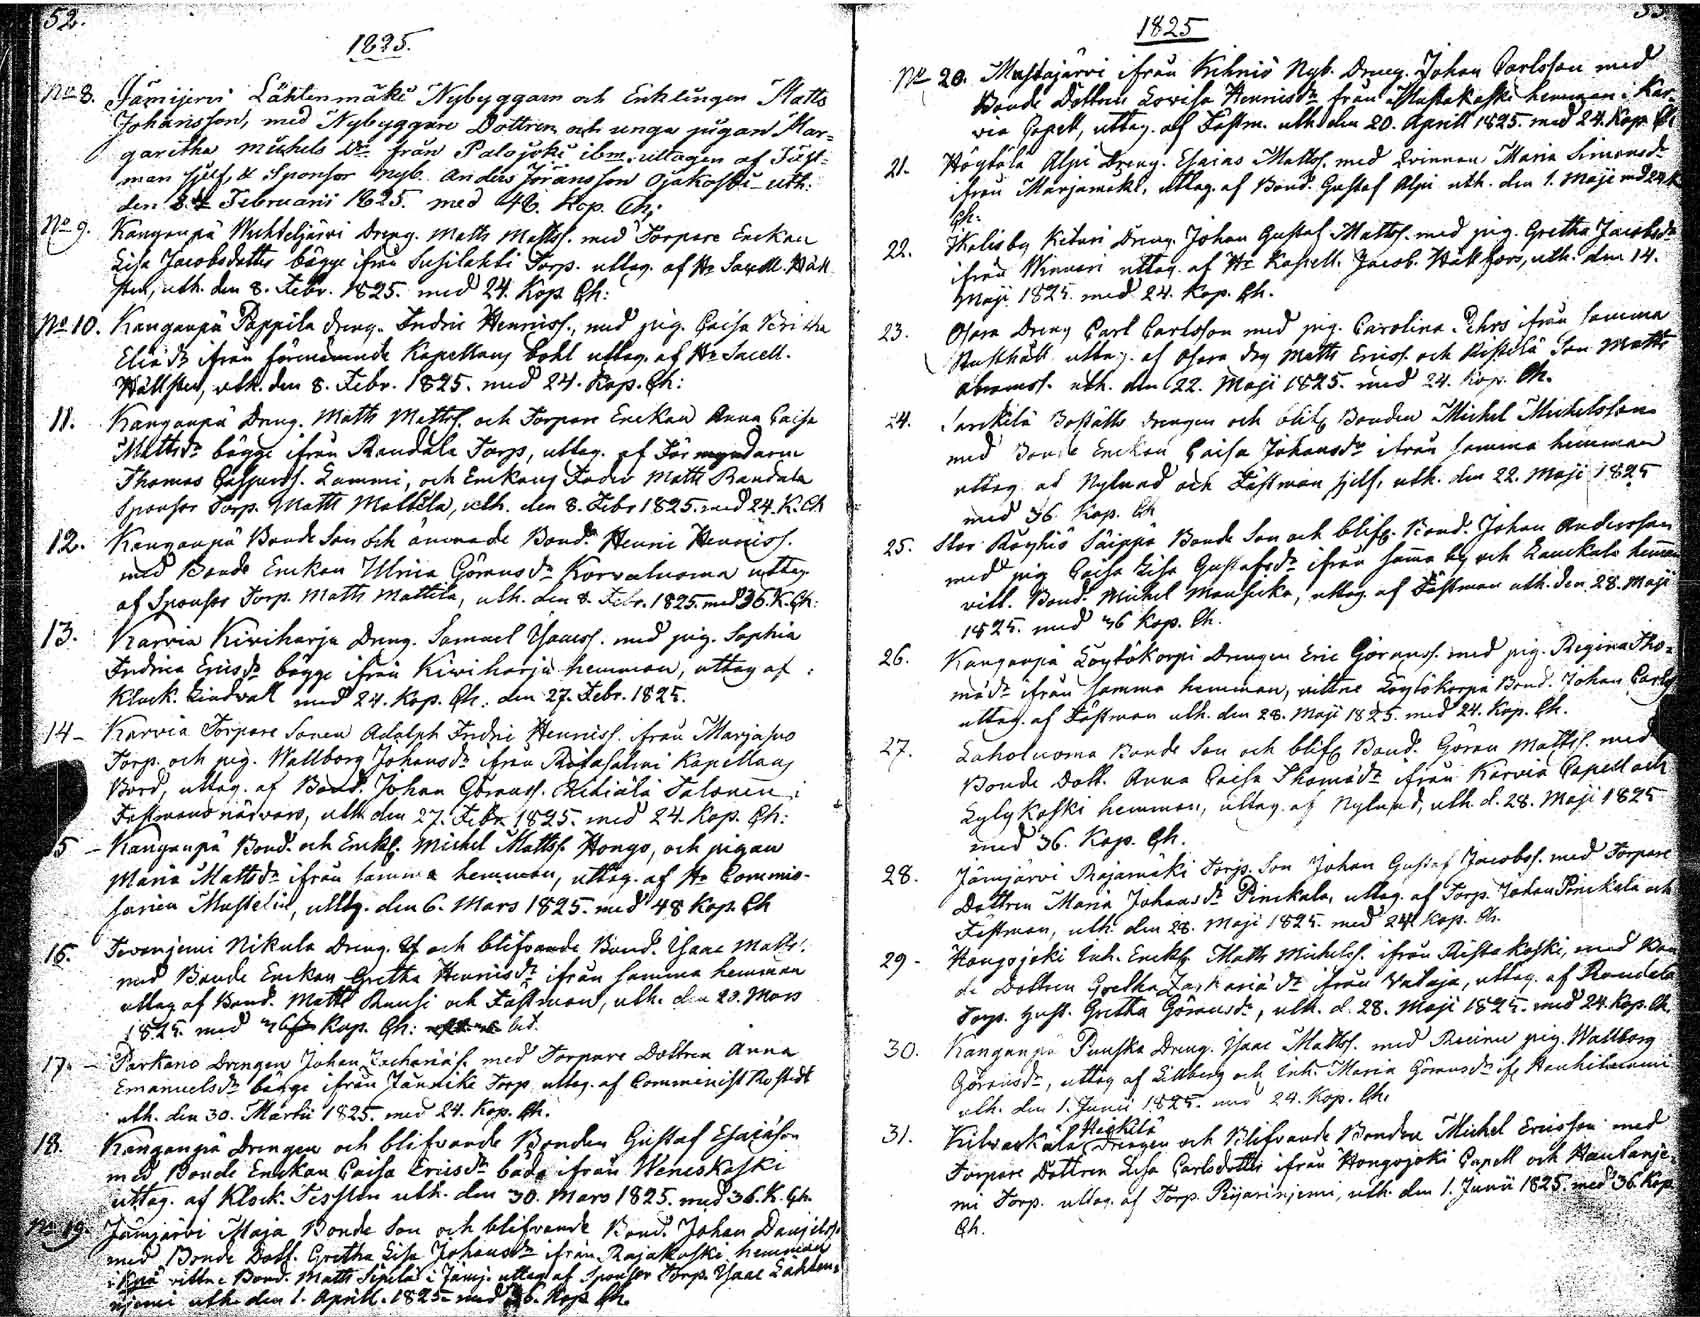 52.
1825.
No 8. Jämijervi Lähtenmäki Nybyggaren och Enklingen Matts
Johansson, med Nybyggare Dottren och unga pigan Mar-
garetha Michels Dr från Palojoki ibm. uttagen af Fäst-
man sjelf & Sponsor Nyb. Anders Jöransson Ojakoski uth.
den Februarii 1825. med 48. Kop. Ch:
No 9. Kanganpä Wuhteljärvi Dreng. Matts Mattss. med Torpare Enckan
Lisa Jacobsdotter bägge ifrån Susilehti Torp. uttag. af Hr Sacell. Häll
sten, uth. den 8. Febr. 1825. med 24. Kop Ch:
No 10. Kanganpä Pappila dreng. Fredric Henricss., med pig. Caisa
Eliædr ifrån förenämnde Kapellans bohl uttag. af Hr Sacell.
Hällsten, uth. den 8. Febr. 1825. med 24. Kop. Ch:
11. Kanganpä Dreng. Matts Mattss. och Torpare Enckan Anna Caisa
Mattsdr bägge ifrån Randala Torp, uttag. af Förmyndaren
Thomas Caspers. Lammi, och Enckans Fader Matts Randala
Sponsor Torp. Matts Mattila, uth. den 8. Febr 1825. med 24. K. Ch
12. Kanganpä Bonde Son och ämnade Bond. Henric Henricss.
med Bonde Enckan Ulrica Göransdr Korvaluoma uttag.
af Sponsor Torp. Matts Mattila, uth. den 8. Febr. 1825. med 36. K. Ch:
13. Karvia Kiviharju Dreng. Samuel Isaacss. med pig. Sophia
Fredrica Ericsdr bägge ifrån Kiviharju hemman, uttag af
Klock. Lindvall med 24. Kop. Ch. den 27. Febr. 1825.
14 - Karvia Torpare Sonen Adolph Fredric Henricss. ifrån Marjasuo
Torp. och pig. Wallborg Johansdr ifrån Kapellans
Bord, uttag. af Bond. Johan Göranss. Salonen i
Festmans närvaro, uth den 27. Febr. 1825. med 24. Kop. Ch:
15 - Kanganpä Bond. och Enckl. Michel Mattss. Hongo, och pigan
Maria Mattsdr ifrån samma hemman, uttag. af Hr Commis-
sarien Mustelin, uttg. den 6. Mars 1825. med 48 Kop. Ch
16. Tevanjemi Nikula Dreng. och blifvande Bond. Isaac Matts.
med Bonde Enckan Gretha Henricsdr ifrån samma hemman
uttag af Bond. Matts Ruusi och Fästman, uth. den 20. Mars
1825. med 36 Kop. Ch:
17. - Parkano Drengen Johan Zacharias. med Torpare Dottren Anna
Emanuelsdr bägge ifrån Torp. uttag. af Comminist Rostedt
uth. den 30. Martii 1825. med 24. Kop. Ch.
18. Kanganpä Drengen och blifvande Bonden Gustaf Esaiason
med Bonde Enckan Caisa Ericsdr båda ifrån Weneskoski
uttag. af Klock. Tesslin uth. den 30. Mars 1825. med 36. K. Ch
No 19. Jämjärvi Maja Bonde Son och blifvande Bond. Johan Danjelss.
med Bonde Dott. Gretha Lisa Johansdr ifrån Rajakoski hemman
vittne Bond. Matts Sipilä i Jämj. uttag af Sponsor Torp. Isaac Lähten-
njemi uth. den 1. Aprill. 1825 med 36. Kop Ch.
53.
1825
No 20. Mustajärvi ifrån Kihniö Nyb. Dreng. Johan Carlsson med
Bonde Dottren Lovisa Henricsdr från Mustakoski hemman. Kar-
via Capell, uttag. af Fästm. uth. den 20. Aprill 1825. med 24. Kop. Ch
21. Högfåla Alpi Dreng. Esaias Mattss. med Qvinnan Maria Simonsdr
ifrån Marjamäki, uttag. af Bond. Gustaf Alpi uth. den 1. Maji md 24 K
Ch:
22. Ikalisby Keturi Dreng. Johan Gustaf Mattss. med pig. Gretha Jacobsdr
ifrån Winnari uttag. af Hr Kapell. Jacob. Hällfors, uth. den 14.
Maji 1825. med 24. Kop. Ch.
23. Osara Dreng Carl Carlsson med pig. Carolina Pehrs ifrån samma
Rusthåll uttag. af Osara drg Matts Ericss. och Ristilä Son Matts
Abramss. uth. den 22. Maji 1825. med 24. Kop. Ch.
24. Sarkilä Boställs drengen och blifv. Bonden Michel Michelsson
med Bonde Enckan Caisa Johansdr ifrån samma hemman
uttag. af Nylund och Fästman sjelf, uth. den 22. Maji 1825
med 36. Kop. Ch
25. Stor Röyhiö Säippä Bonde Son och blifv. Bond. Johan Andersson
med pig Caisa Lisa Gustafsdr ifrån samma by och Laurkala hemman
vitt. Bond. Michel Mansicka, uttag. af Fästman uth. den 28. Maji
1825. med 36 Kop. Ch.
26. Kanganpä Löytökorpi Drengen Eric Göranss. med pig. Regina Tho-
mædr ifrån samma hemman, vittne Löytökorpi Bond. Johan Carls
uttag. af Fästman uth. den 28. Maji 1825. med 24. Kop. Ch.
27. Laholuoma Bonde Son och blifv Bond. Göran Mattss. med
Bonde Dott. Anna Caisa Thomædr ifrån Karvia Capell och
Lylykoski hemman, uttag. af Nylund, uth. d. 28. Maji 1825
med 36. Kop. Ch.
28. Jämjärvi Rajamäki Torp. Son Johan Gustaf Jacobss. med Torpare
Dottren Maria Johansdr Pinckala, uttag. af Torp. Johan Pinckala och
Fästman, uth. den 28. Maji 1825. med 24 Kop. Ch.
29 - Hongojoki Inh. Enckl. Matts Michelss. ifrån Ristakoski, med Bon
de Dottren Gretha Zachariædr ifrån Vataja, uttag. af Randala
Torp. Hust. Gretha Göransdr, uth. d. 28. Maji 1825. med 24. Kop. Ch.
30. Kanganpä Punska Dreng. Isaac Mattss. med pig. Wallborg
Göransdr, uttag af Lillberg och Inh. Maria Göransdr ifr
uth. den 1. Junii 1825. med 24. Kop. Ch.
Heckilä
31. Kilvackala Drengen och Blifvande Bonden Michel Ericsson med
Torpare Dottren Lisa Carlsdotter ifrån Hongojoki Capell och Hautanje-
mi Torp. uttag. af Torp. Pijarinjemi, uth. den 1. Junii 1825. med 36. Kop
Ch.